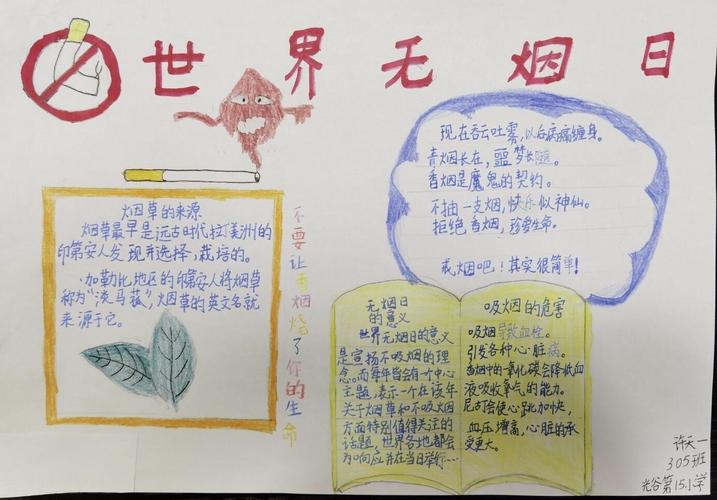 世界无烟日
现在吞云吐雾,以后病痛缠身。
青烟长在,噩梦长随。
香烟是魔鬼的契约。
不抽一支烟,快乐似神仙。
拒绝香烟,珍爱生命。
戒烟吧,!其实很简单!
烟草的来源
烟草最早是远古时代拉丁美洲的
印第安人发现并选择,栽培的。
加勒比地区的印第安人将烟草
称为“淡马菰”,烟草的英文名就
来源于它。
不要让香烟烧了你的生命
无烟日
的意义
世界无烟日的意义
是宣扬不吸烟的理
念。而每年皆会有一中心
主题,表示一个在该年
关于烟草和不吸烟
方面特别值得关注的
话题,世界各地都会
为响应并在当日举行……
吸烟的危害
吸烟导致血栓。
引发各种心脏病。
香烟中的一氧化碳会降低血
液吸收氧气的能力。
尼古丁会使心跳加快,
血压增高,心脏的承
受更大。
许天一
305班
光谷第15小学